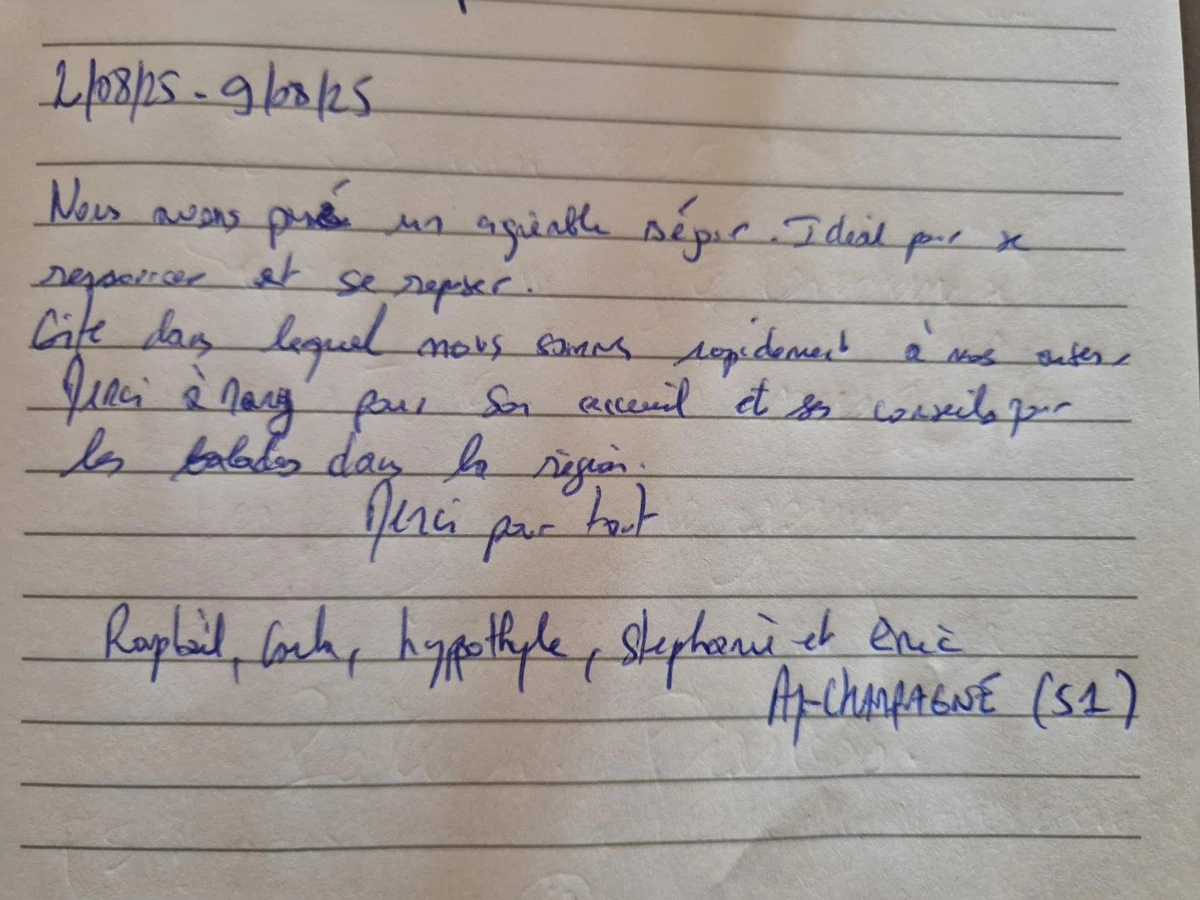 2/08/25 - 9/08/25
Nous avons passé un agréable séjour. Idéal pour se
ressourcer et se reposer.
Gîte dans lequel nous sommes rapidement à nos
Merci à pour son acceuil et ses conseils pour
les balades dans la région.
Merci pour tout
Raphaël, hypothyle, Stephanie et Eric
AŸ-CHAMPAGNE (51)